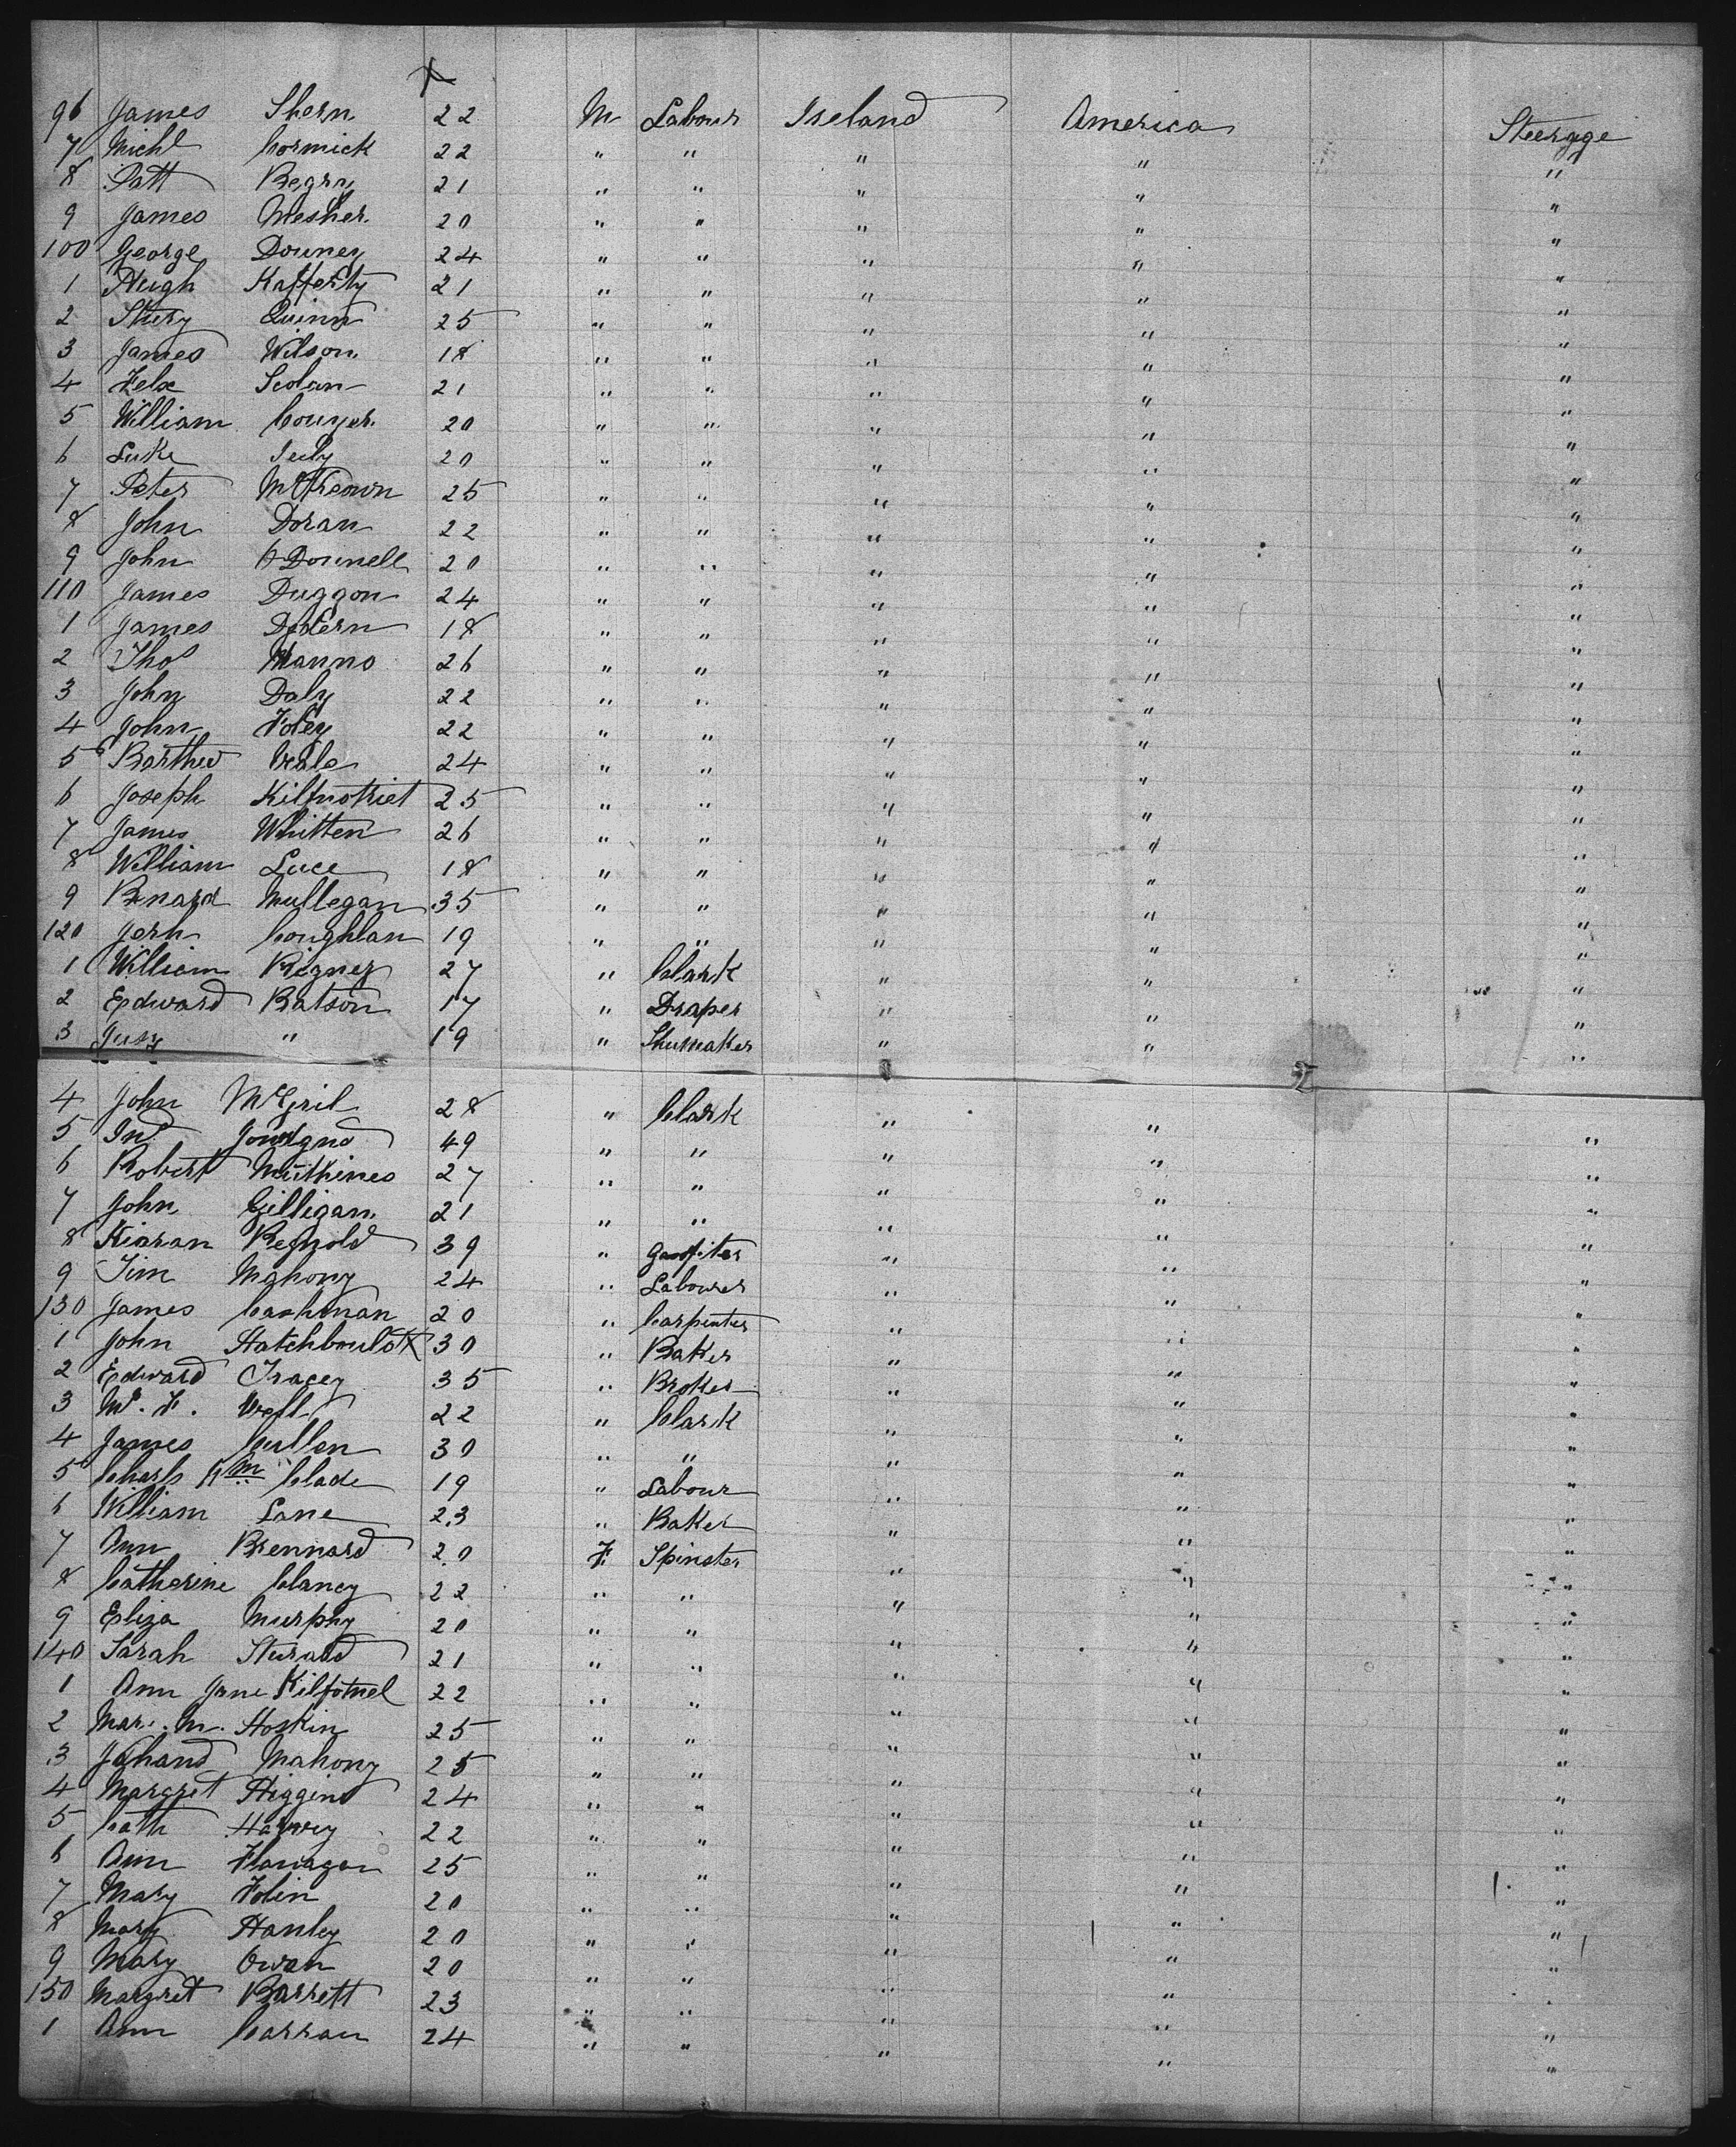 96 James Shern 22 M Labour Ireland America Steerage
7 Michl Cormick 22 " " " " "
8 Patt 21 " " " " "
9 James Mesher 20 " " " " "
100 George Downey 24 " " " " "
1 Hugh Kafferty 21 " " " " "
2 Quinn 25 " " " " "
3 James Wilson 18 " " " " "
4 Felx Scolan 21 " " " " "
5 William 20 " " " " "
6 Luke 20 " " " " "
7 Peter McKeown 25 " " " " "
8 John Doran 22 " " " " "
9 John O'Donnell 20 " " " " "
110 James Duggon 24 " " " " "
1 James 18 " " " " "
2 Thos Manno 26 " " " " "
3 John Daly 22 " " " " "
4 John Foley 22 " " " " "
5 Barthw 24 " " " " "
6 Joseph 25 " " " " "
7 James Whitten 26 " " " " "
8 William Luce 18 " " " " "
9 Bnard Mullegan 35 " " " " "
120 Jerh Coughlan 19 " " " " "
1 William Rigney 27 " Clark " " "
2 Edward Batson 17 " Draper " " "
3 " 19 " Shumaker " " "
4 John McGril 28 " Clark " " "
5 49 " " " " "
6 Robert 27 " " " " "
7 John Gilligan 21 " " " " "
8 Kiaran Regnold 39 " Gasfiter " " "
9 Tim Mahony 24 " Labourer " " "
130 James Cashman 20 " Carpenter " " "
1 John 30 " Baker " " "
2 Edward Tracey 35 " Broker " " "
3 22 " Clark " " "
4 James Cullen 30 " " " " "
5 Charls Wm Clade 19 " Labour " " "
6 William Lane 23 " Baker " " "
7 Ann Brennard 20 F Spinster " " "
8 Catherine Clancy 22 " " " " "
9 Eliza Murphy 20 " " " " "
140 Sarah 21 " " " " "
1 Ann Jane 22 " " " " "
2 Mar. M. Hoskin 25 " " " " "
3 Johand Mahony 25 " " " " "
4 Margret Higgins 24 " " " " "
5 Cath 22 " " " " "
6 Ann Flanagan 25 " " " " "
7 Mary Folin 20 " " " " "
8 Mary Hanley 20 " " " " "
9 Mary Owen 20 " " " " "
150 Margret Barrett 23 " " " " "
1 Ann Carran 24 " " " " "